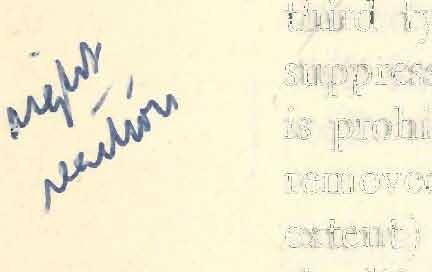 right
reaction
third ty
suppress
is prohi
removed
extent)